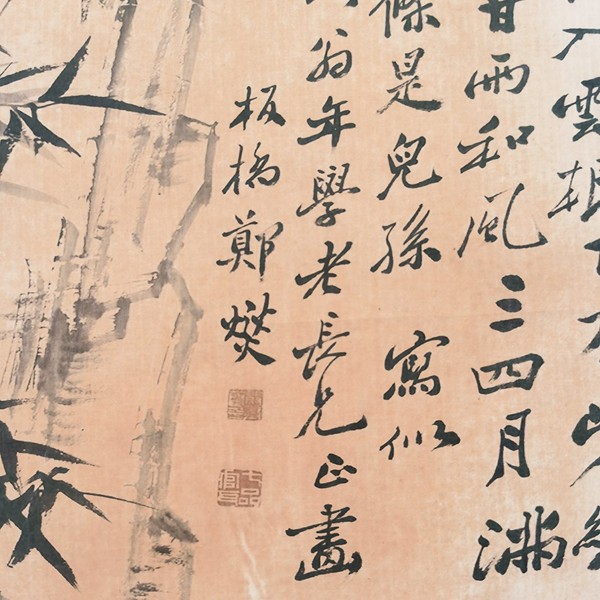 入雲根
甘雨和風三四月滿
條是兒孫 寫似
翁年學老長兄正畫
板橋鄭燮
七品官耳